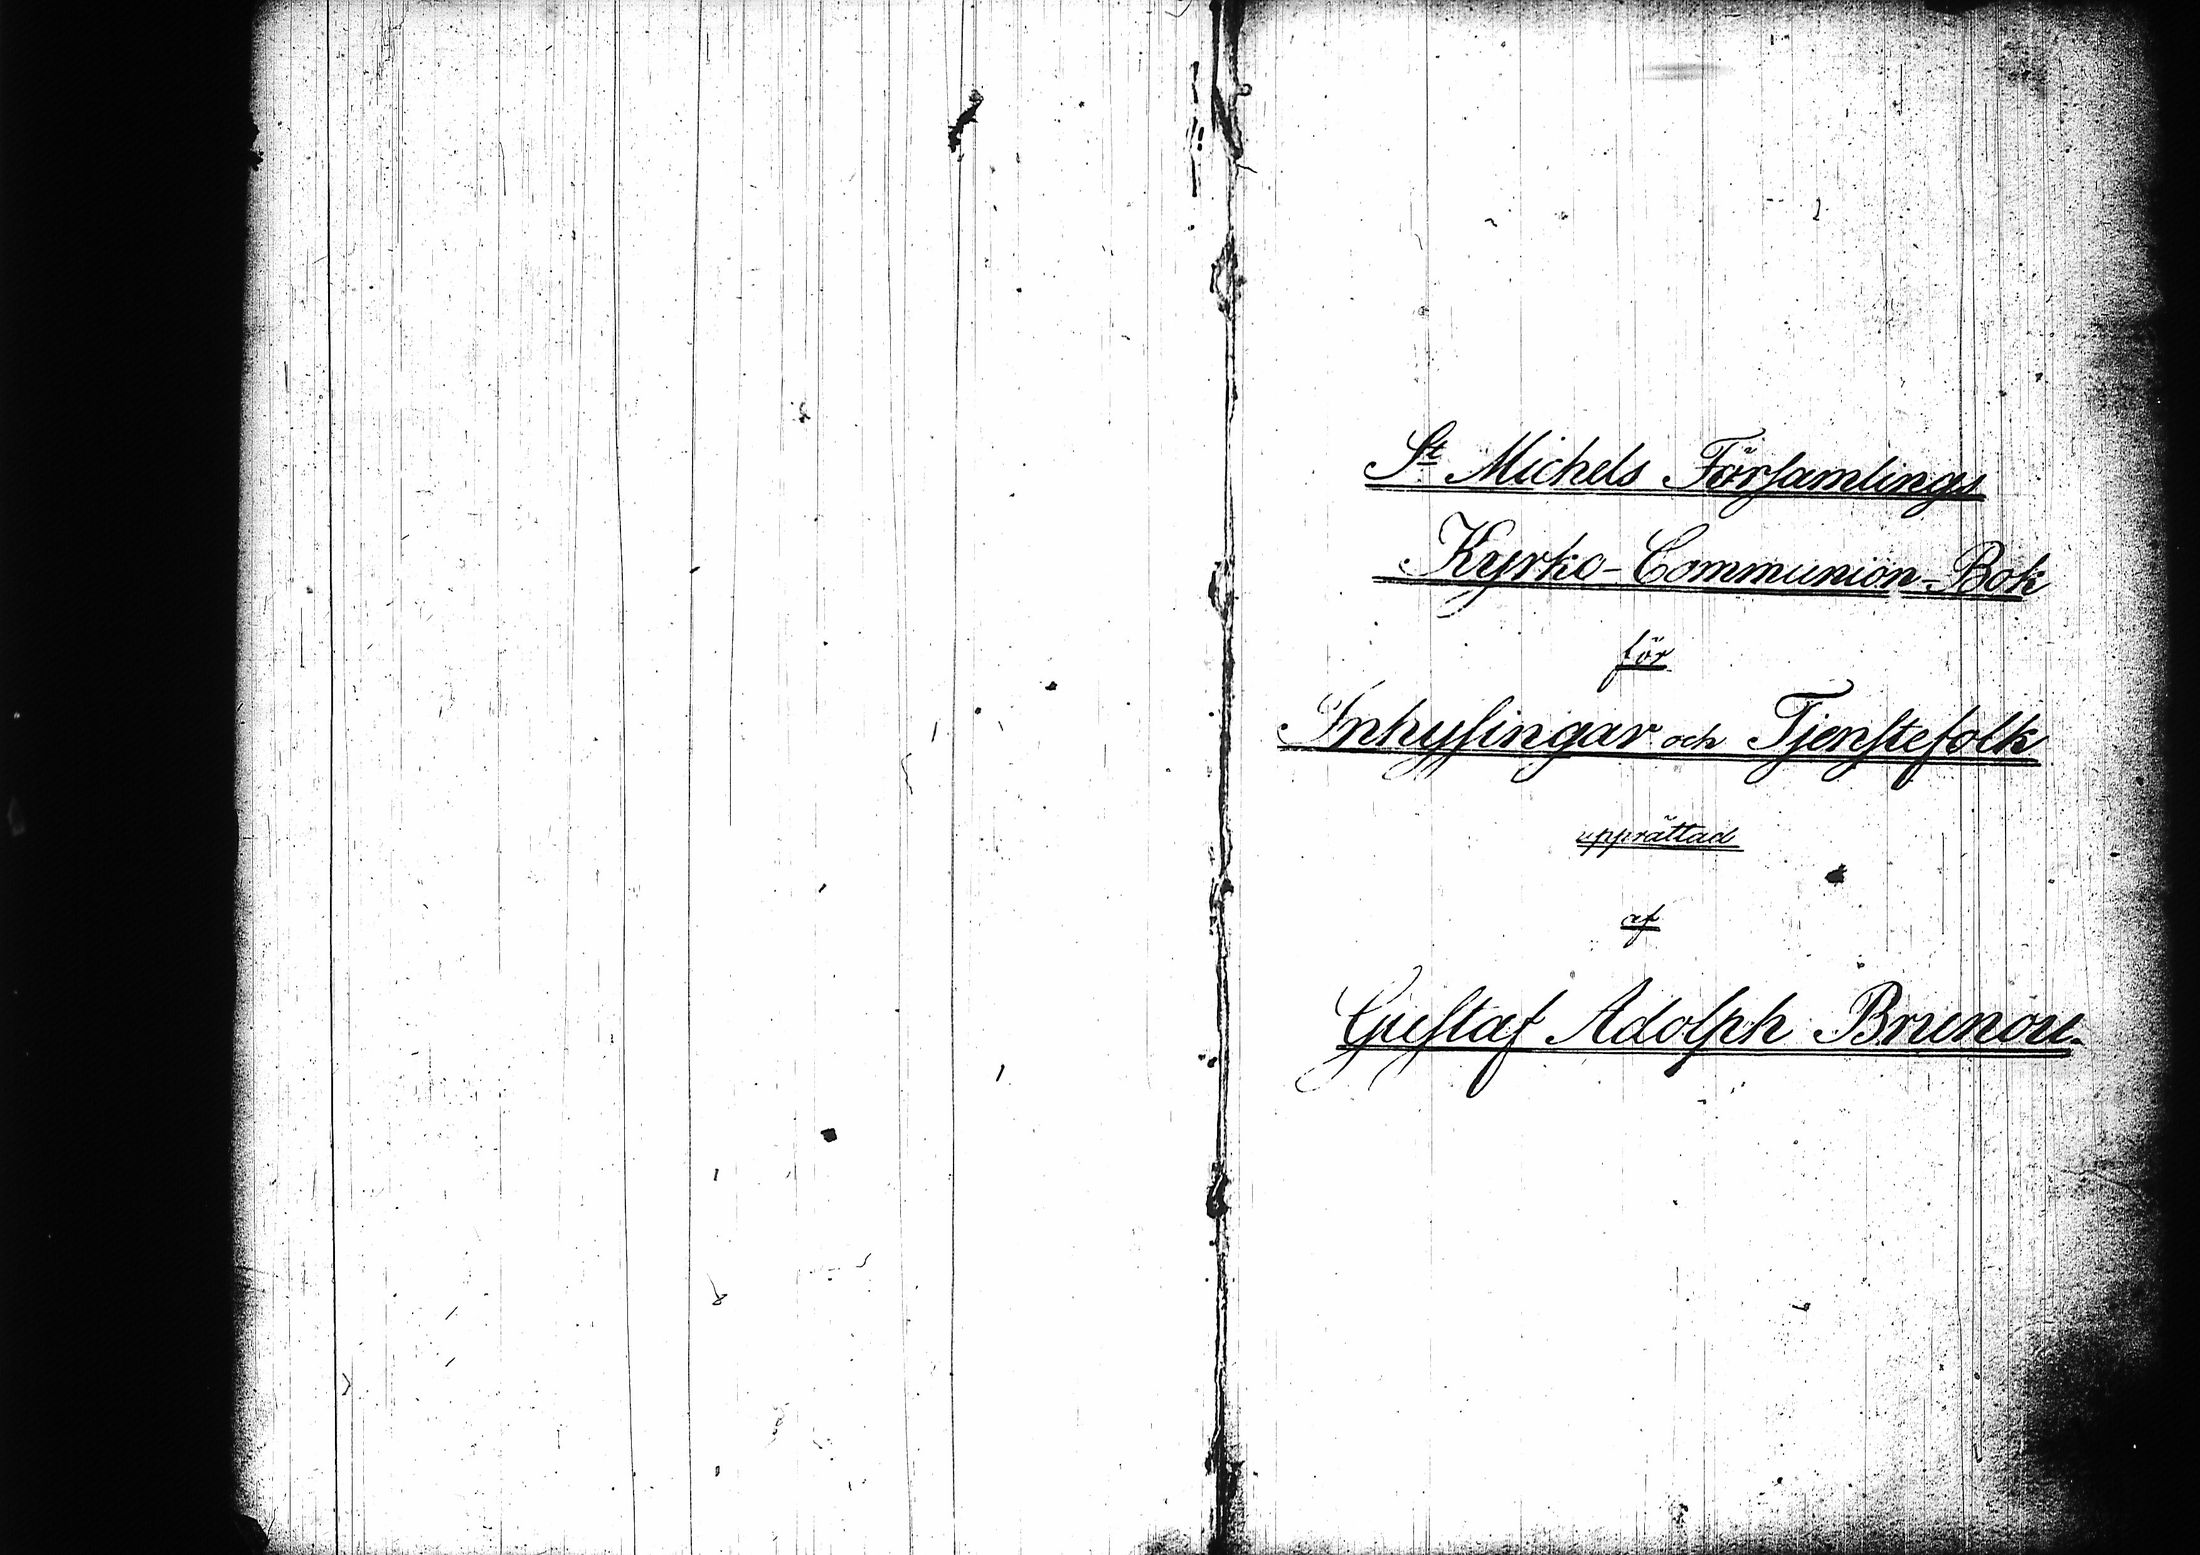 St Michels Församlings
Kyrko-Communion-Bok
för
Inhysingar och Tjenstefolk
upprättad
af
Gustaf Adolph Brunou.